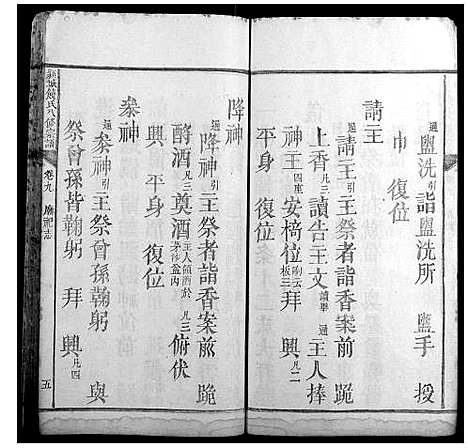 通盥洗引詣盥洗所 盥手 授
巾 復位
請主
通請主引主祭者詣香案前 跪
上香凡三讀告主文讀畢通主人捧
神主四座安椅位三拜 興凡二
平身 復位
降神
通降神引主祭者詣香案前 跪
酹酒凡三奠酒主人領酒於茅沙盆內凡三俯伏
興 平身 復位
叅神
通叅神引主祭曾孫鞠躬 與
祭曾孫皆鞠躬 拜 興凡四
氏八修宗譜 卷九 廟祀志 五